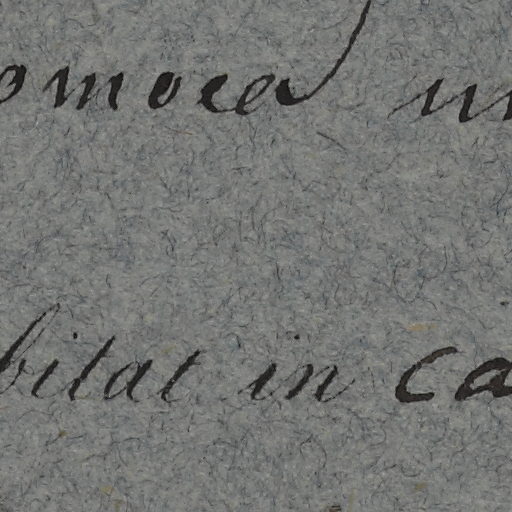 omocea
bitat in ca